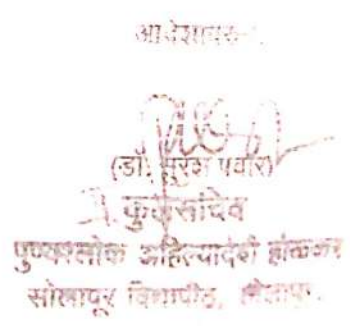 आदेशावरुन
(डॉ. सुरेश पवार)
कुलसचिव
पुण्यश्लोक अहिल्यादेवी होळकर
सोलापूर विद्यापीठ, सोलापूर.